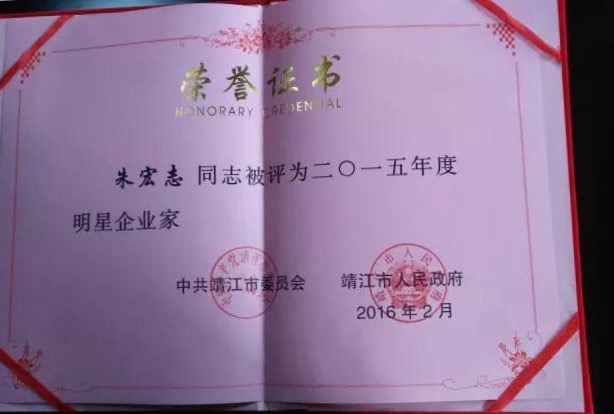 荣誉证书
HONORARY CREDENTIAL
朱宏志 同志被评为二〇一五年度
明星企业家
中共靖江市委员会 靖江市人民政府
2016年2月